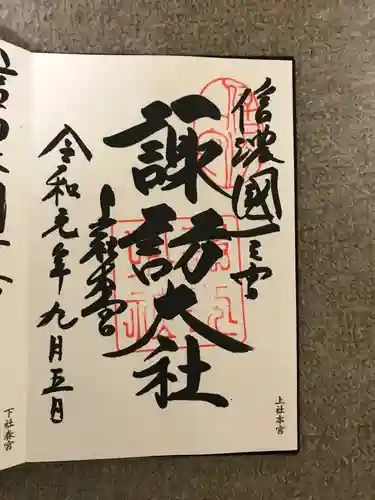 信濃國一之宮
諏訪大社
上社本宮
令和元年九月五日
上社本宮
下社春宮